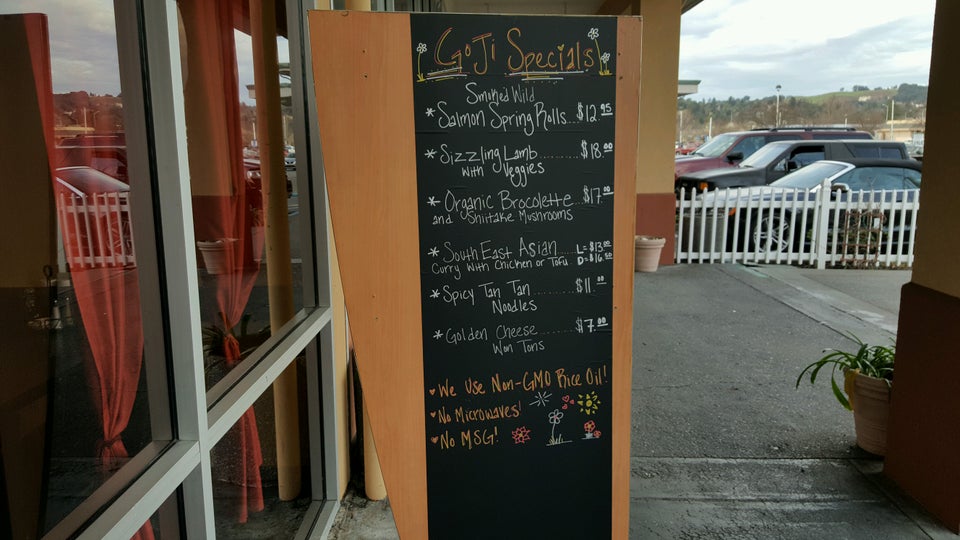 GoJi Specials
Smoked Wild
* Salmon Spring Rolls... $12.95
* Sizzling Lamb........ $18.00
with Veggies
* Organic Brocolette... $17.00
and Shiitake Mushrooms
* South East Asian.... L=$13.00
Curry with Chicken or Tofu D=$16.50
* Spicy Tan Tan....... $11.00
Noodles
* Golden Cheese....... $7.00
Won Tons
♥ We Use Non-GMO Rice Oil!
♥ No Microwaves!
♥ No MSG!